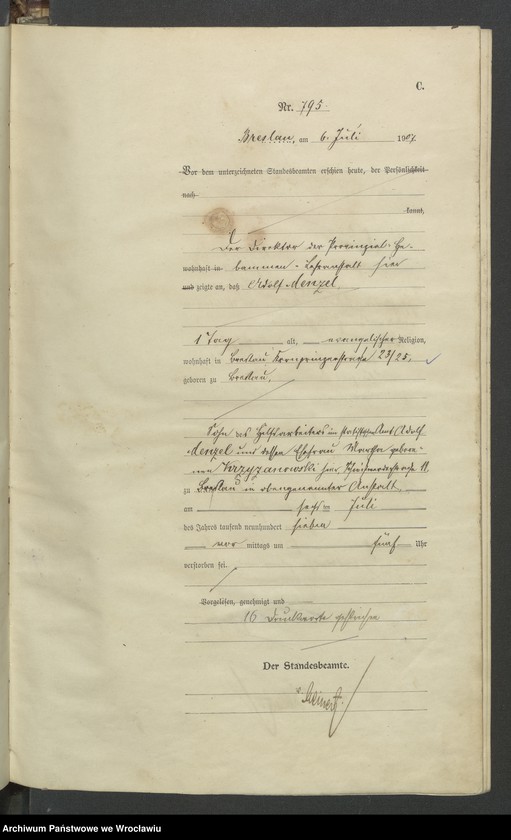 C.
Nr. 795.
Breslau, am 6. Juli 1907.
Vor dem unterzeichneten Standesbeamten erschien heute, der Persönlichkeit
nach
kannt,
Der Direktor der Provinzial-He-
wohnhaft in bammen-Lehranstalt hier
und zeigte an, daß Adolf Menzel
1 Tag alt, evangelischer Religion,
wohnhaft in Breslau Kronprinzenstrasse 23/25,
geboren zu Breslau,
Sohn des Hilfsarbeiters im statistischen Amt Adolf
Menzel und dessen Ehefrau Martha gebore-
nen Krzyzanowski hier, 11.
zu Breslau in obengenannter Anstalt
am sechs Juli
des Jahres tausend neunhundert sieben
vor mittags um fünf Uhr
verstorben sei.
Vorgelesen, genehmigt und
16 Druckworte gestrichen
Der Standesbeamte.